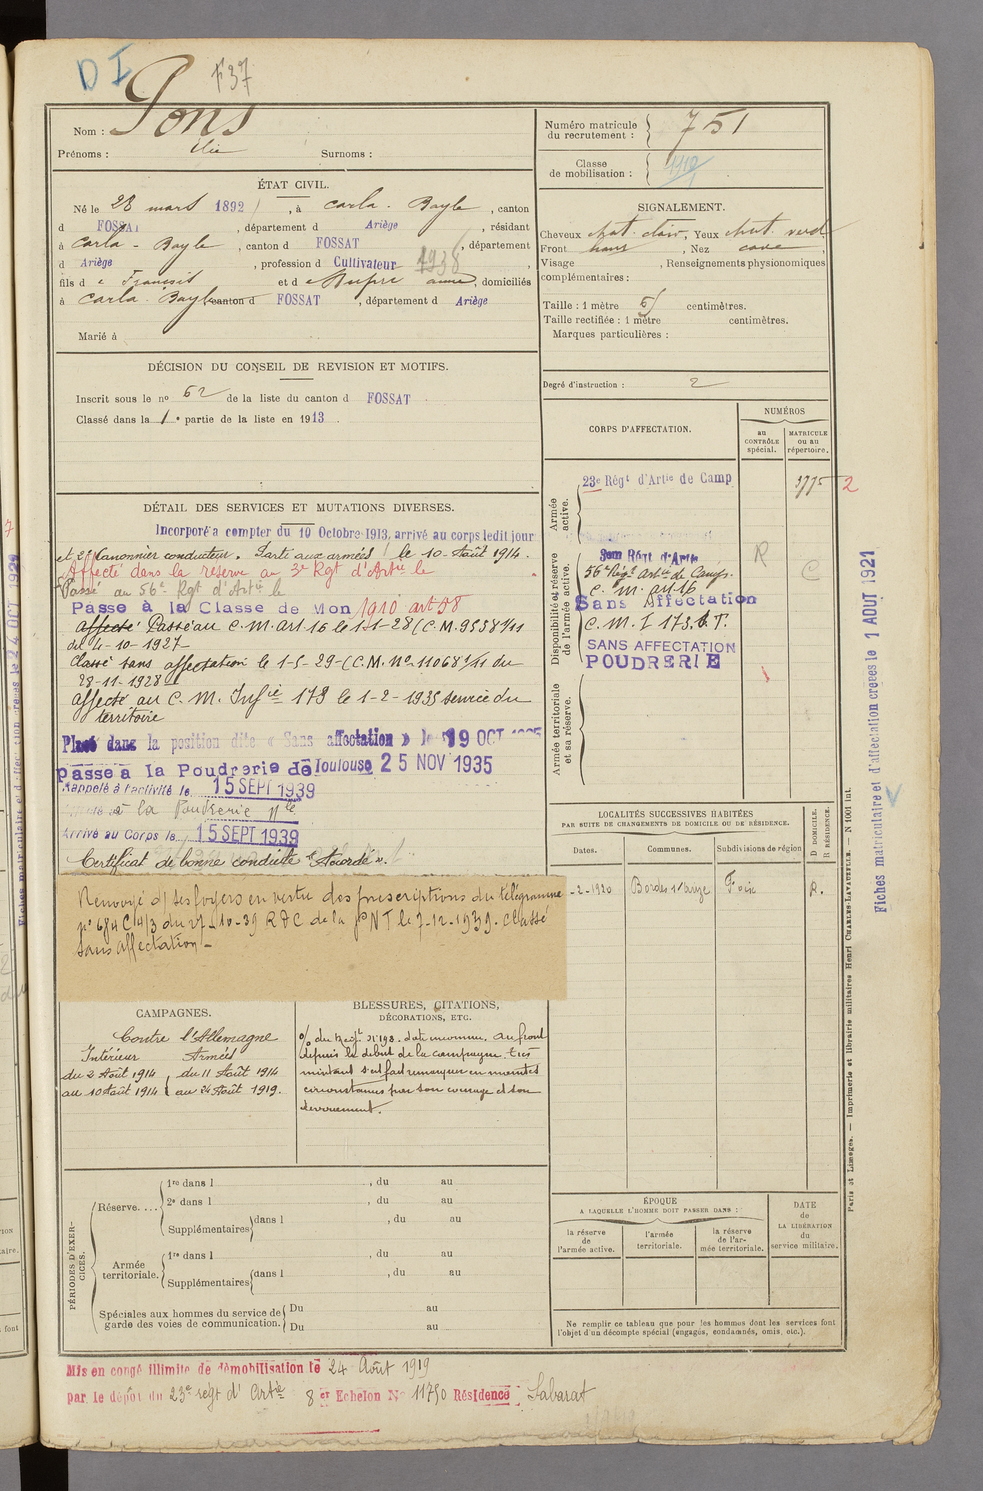 D I
F37
Nom : Pons
Prénoms : Elie Surnoms :
Numéro matricule du recrutement : 751
Classe de mobilisation : 1912
ÉTAT CIVIL.
Né le 28 mars 1892, à Carla-Bayle, canton
d FOSSAT, département d Ariège, résidant
à Carla-Bayle, canton d FOSSAT, département
d Ariège, profession d Cultivateur 1938
fils de François et de Dupré anne, domiciliés
à Carla-Bayle canton d FOSSAT, département d Ariège
Marié à
SIGNALEMENT.
Cheveux chat. clair, Yeux chat. verd
Front , Nez cave
Visage , Renseignements physionomiques
complémentaires :
Taille : 1 mètre 6 centimètres.
Taille rectifiée : 1 mètre centimètres.
Marques particulières :
Degré d'instruction : 2
DÉCISION DU CONSEIL DE REVISION ET MOTIFS.
Inscrit sous le nº 62 de la liste du canton d FOSSAT
Classé dans la 1e partie de la liste en 1913.
CORPS D'AFFECTATION.
NUMÉROS
au CONTRÔLE spécial.
MATRICULE ou au répertoire.
Armée active.
23e Régt d'Artie de Camp
2
Disponibilité et réserve de l'armée active.
3em Régt d'Artie
R
56e Régt Artie de Camp.
C
C. m. art 16
Sans Affectation
C. m. I 173. T.
SANS AFFECTATION
POUDRERIE
Armée territoriale et sa réserve.
DÉTAIL DES SERVICES ET MUTATIONS DIVERSES.
Incorporé à compter du 10 Octobre 1913, arrivé au corps ledit jour
et 2e Canonnier conducteur. Parti aux armées le 10 Août 1914.
Affecté dans la réserve au 3e Rgt d'Artie le
Passé au 56e Rgt d'Artie le
Passe à la Classe de Mon 1910 art 58
affecté Passé au C. M. art. 16 le 1-1-28 (C.M. 9538 1/11
du 4-10-1927-
Classé sans affectation le 1-5-29-(C.M. No. 11068 1/11 du
28-11-1928
Affecté au C. M. Infie 173 le 1-2-1935 service du
territoire
Placé dans la position dite « Sans affectation » le 19 OCT
passe à la Poudrerie de Toulouse 25 NOV 1935
Rappelé à l'activité le 15 SEPT 1939
à la Poudrerie Nle
Arrivé au Corps le 15 SEPT 1939
Certificat de bonne conduite "Accordé".
Renvoyé ds ses foyers en vertu des prescriptions du télégramme
nº 684 C 14/3 du 27-10-39 RDC de la PNT le 7-12-1939. Classé
sans affectation-
LOCALITÉS SUCCESSIVES HABITÉES
PAR SUITE DE CHANGEMENTS DE DOMICILE OU DE RÉSIDENCE.
D DOMICILE. R RÉSIDENCE.
Dates. Communes. Subdivisions de région
-2-1920 Bordes s/arize Foix R.
CAMPAGNES.
Contre l'Allemagne
Intérieur Armées
du 2 Août 1914 du 11 Août 1914
au 10 Août 1914 au 24 Août 1919.
BLESSURES, CITATIONS,
DÉCORATIONS, ETC.
% du Regt nº 193. date inconnue. au front
depuis le début de la campagne. très
méritant s'est fait remarquer en maintes
circonstances par son courage et son
dévouement.
PÉRIODES D'EXERCICES.
Réserve....
1re dans l , du au
2e dans l , du au
Supplémentaires dans l , du au
Armée territoriale.
1re dans l , du au
Supplémentaires dans l , du au
Spéciales aux hommes du service de garde des voies de communication.
Du au
Du au
ÉPOQUE
A LAQUELLE L'HOMME DOIT PASSER DANS :
la réserve de l'armée active.
l'armée territoriale.
la réserve de l'armée territoriale.
DATE de LA LIBÉRATION du service militaire.
Ne remplir ce tableau que pour les hommes dont les services font
l'objet d'un décompte spécial (engagés, condamnés, omis, etc.).
Mis en congé illimité de démobilisation le 24 Août 1919
par le dépôt du 23e régt d'Artie 8e Echelon Nº 11750 Résidence : Sabarat
Fiches matriculaire et d'affectation créées le 1 AOUT 1921
Paris et Limoges. — Imprimerie et librairie militaires Henri CHARLES-LAVAUZELLE. — N 1001 int.